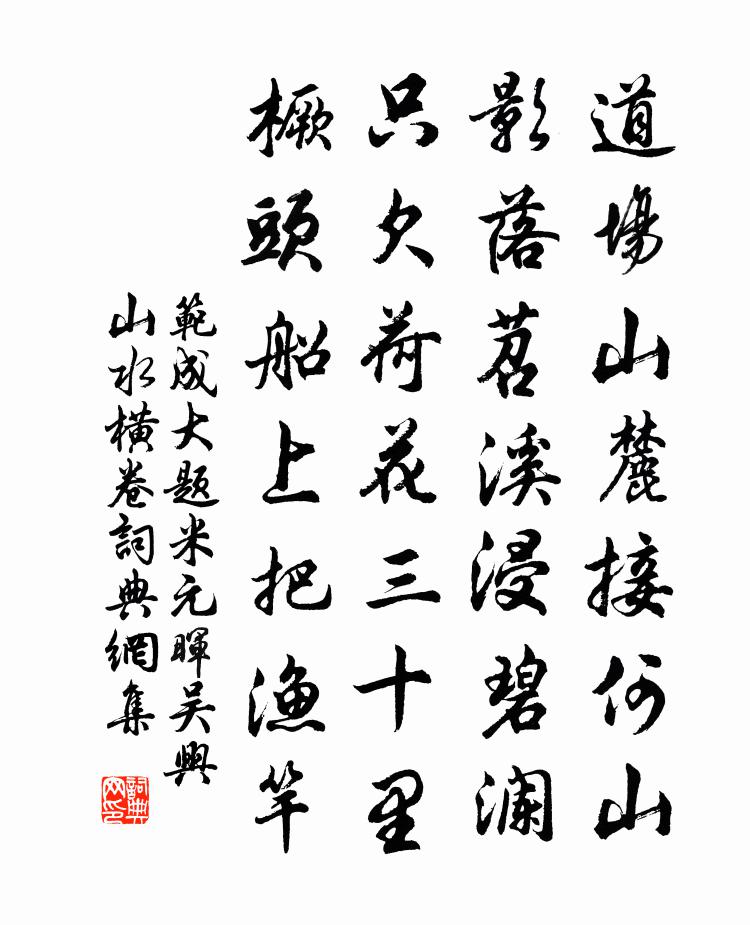 道場山麓接何山
影落苕溪浸碧瀾
只欠荷花三十里
橛頭船上把漁竿
範成大題米元暉吳興
山水橫卷詞典網集
詞典
网印